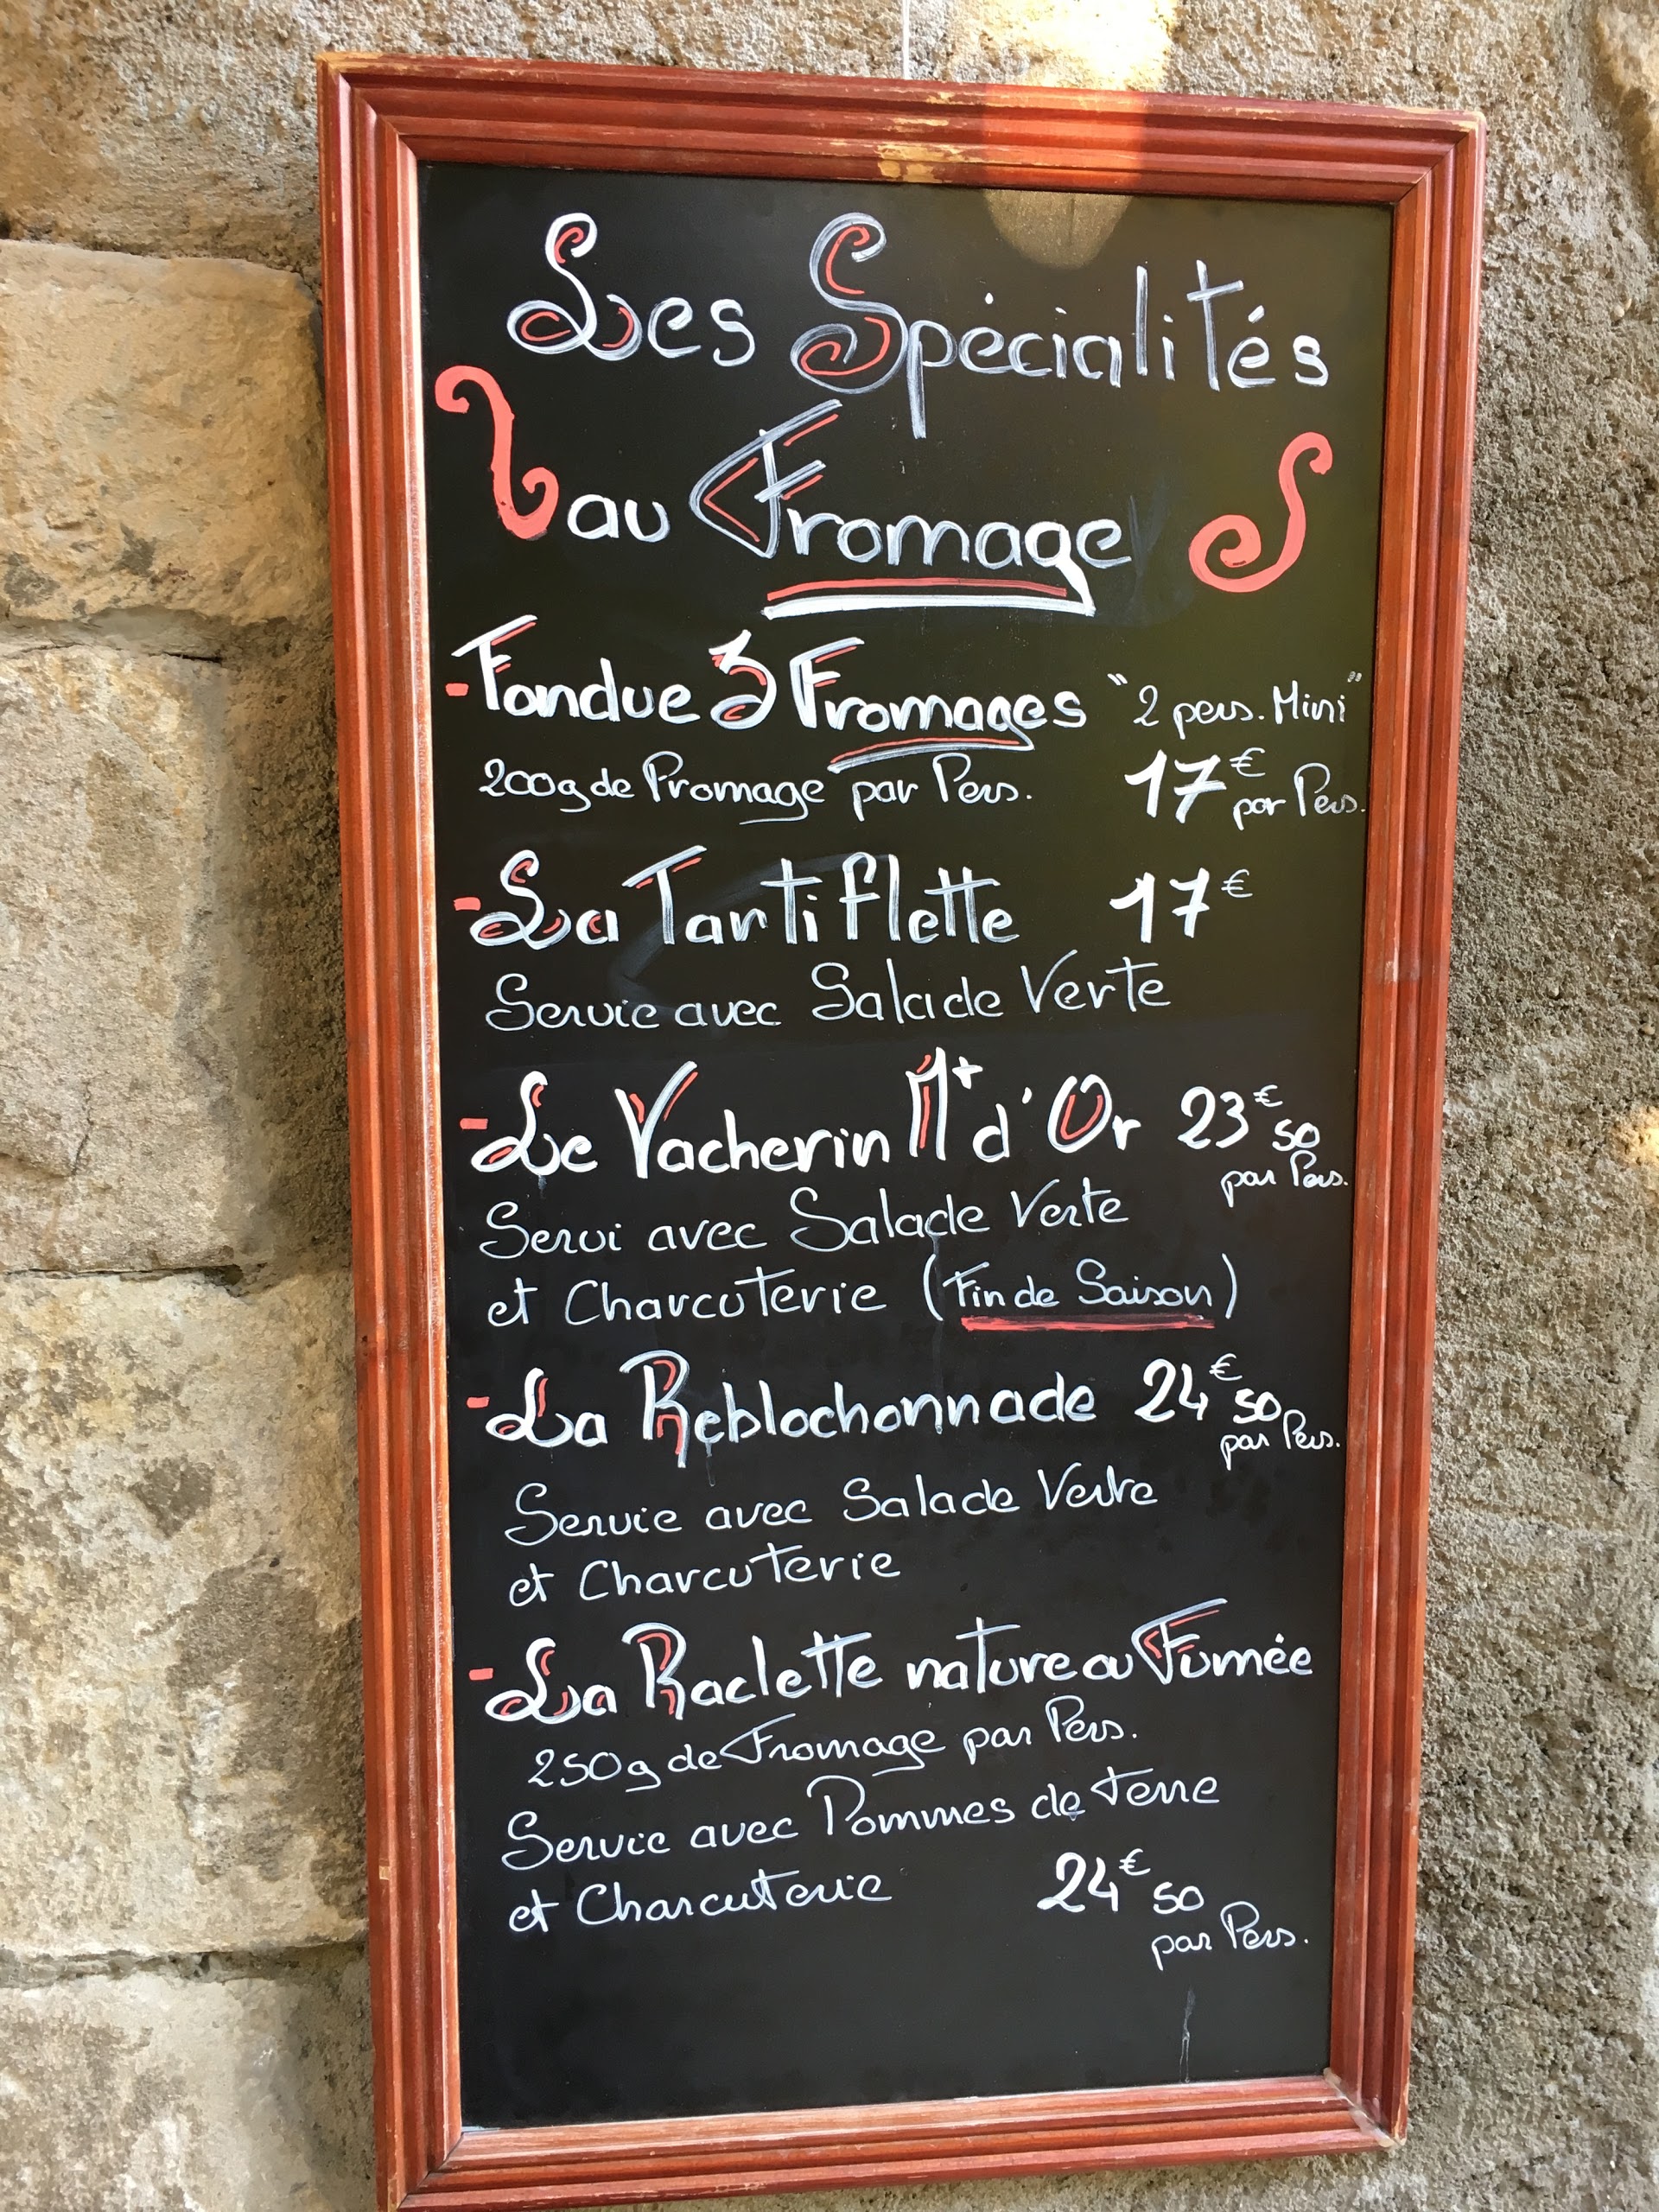 Les Spécialités
au Fromage
- Fondue 3 Fromages "2 pers. Mini"
200g de Fromage par Pers. 17€ par Pers.
- La Tartiflette 17€
Servie avec Salade Verte
- Le Vacherin Mt d'Or 23€50
par Pers.
Servi avec Salade Verte
et Charcuterie (Fin de Saison)
- La Reblochonnade 24€50
par Pers.
Servie avec Salade Verte
et Charcuterie
- La Raclette nature ou Fumée
250g de Fromage par Pers.
Servie avec Pommes de Terre
et Charcuterie 24€50
par Pers.